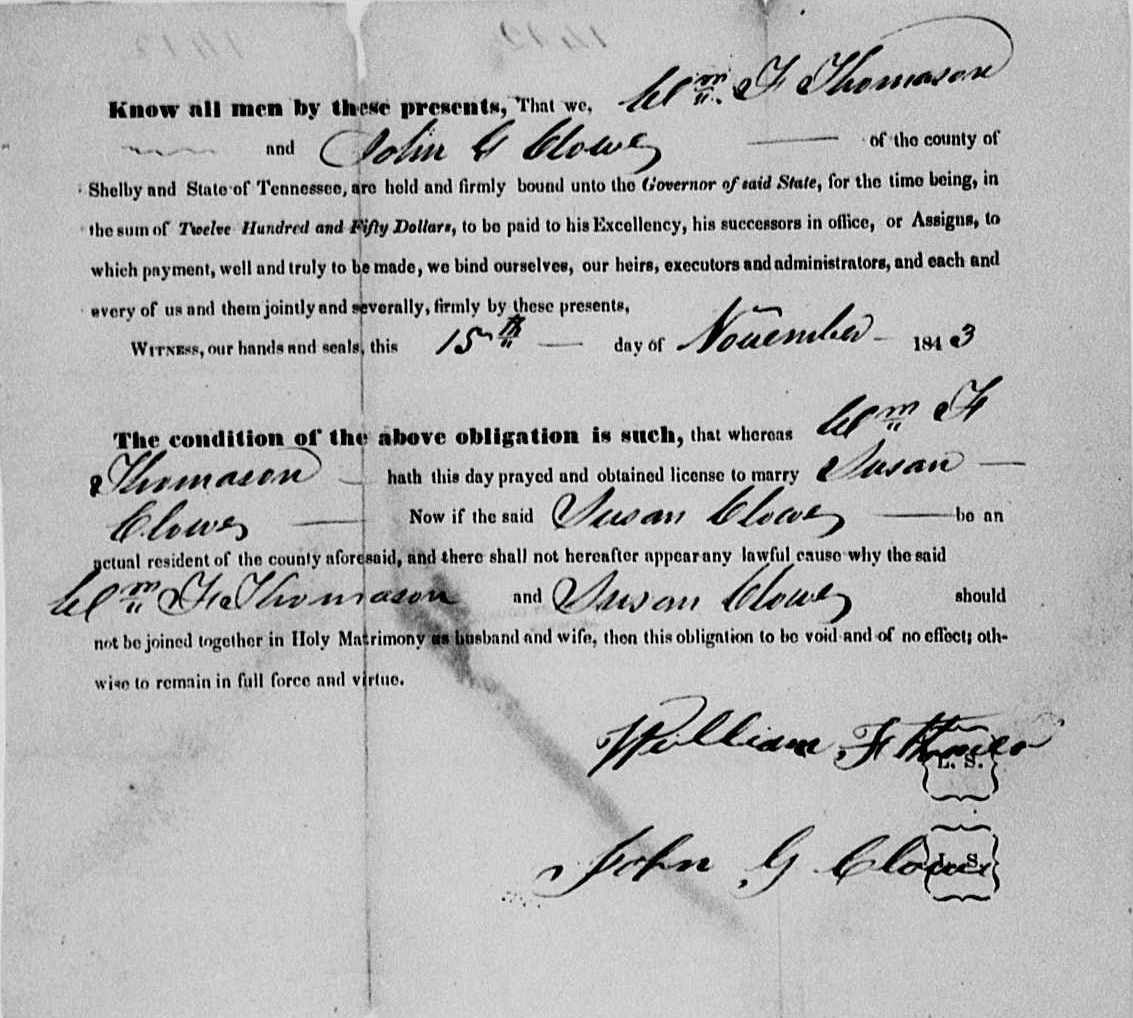 Know all men by these presents, That we, Wm. F Thomason
and John G Clowes of the county of
Shelby and State of Tennessee, are held and firmly bound unto the Governor of said State, for the time being, in
the sum of Twelve Hundred and Fifty Dollars, to be paid to his Excellency, his successors in office, or Assigns, to
which payment, well and truly to be made, we bind ourselves, our heirs, executors and administrators, and each and
every of us and them jointly and severally, firmly by these presents,
WITNESS, our hands and seals, this 15th day of November 1843
The condition of the above obligation is such, that whereas Wm F
Thomason hath this day prayed and obtained license to marry Susan
Clowes Now if the said Susan Clowes be an
actual resident of the county aforesaid, and there shall not hereafter appear any lawful cause why the said
Wm F Thomason and Susan Clowes should
not be joined together in Holy Matrimony as husband and wife, then this obligation to be void and of no effect; oth-
wise to remain in full force and virtue.
William F
L. S.
John G Clowes
L. S.